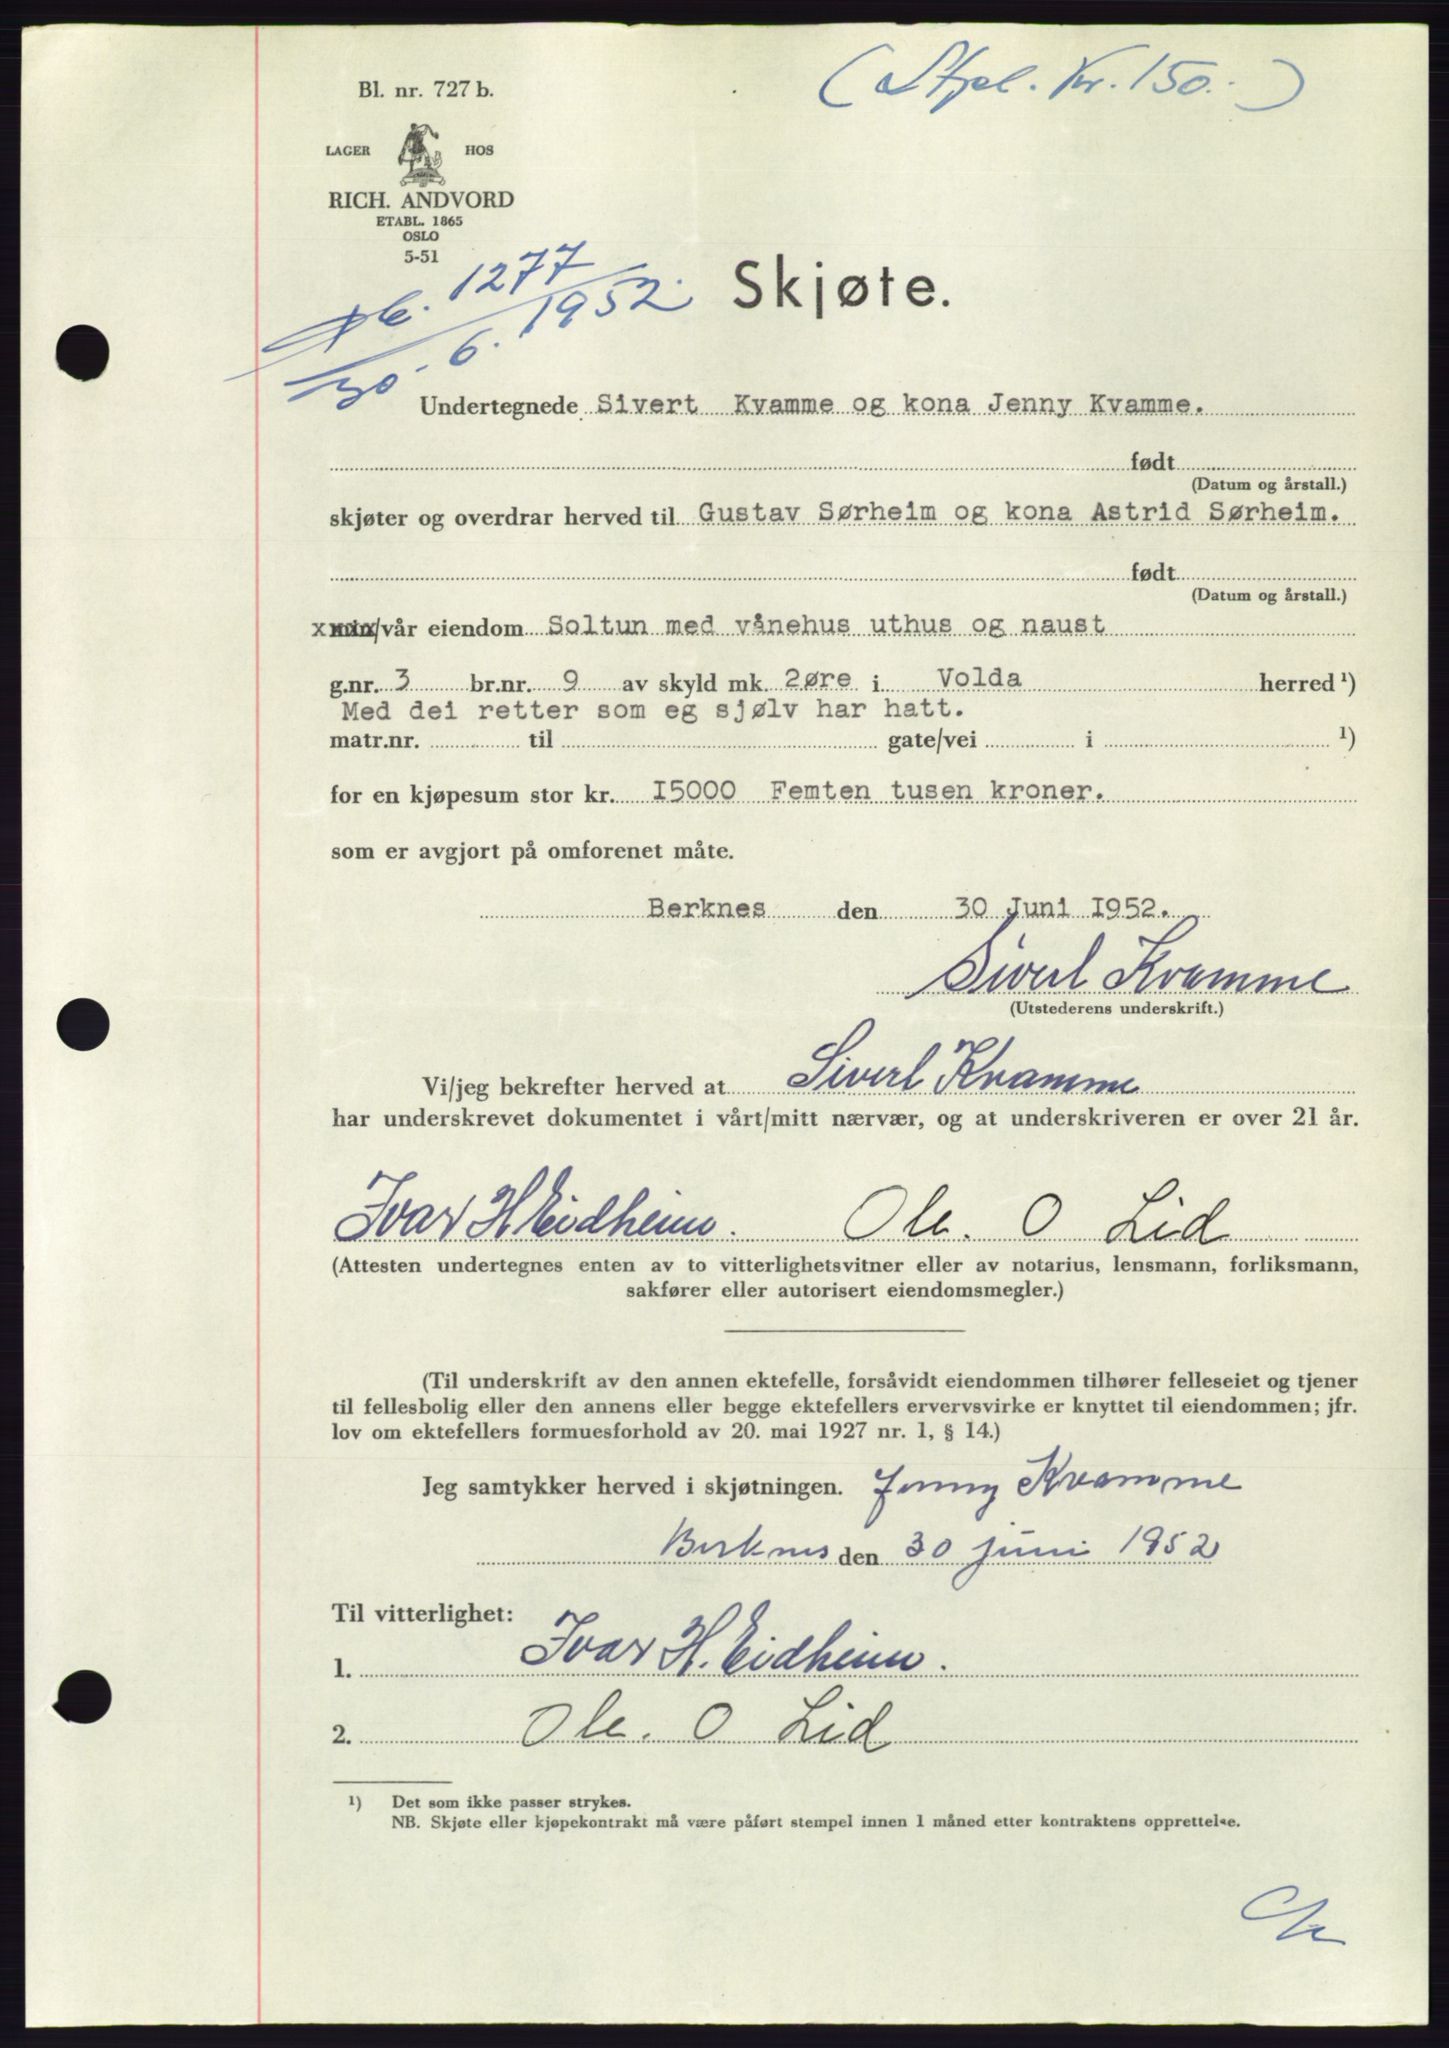 (Stpl. Kr. 150.-)
Bl. nr. 727 b.
LAGER HOS
RICH. ANDVORD
ETABL. 1865
OSLO
5-51
1277
30. 6. 1952.
Skjøte.
Undertegnede Sivert Kvamme og kona Jenny Kvamme.
født
(Datum og årstall.)
skjøter og overdrar herved til Gustav Sørheim og kona Astrid Sørheim.
født
(Datum og årstall.)
min/vår eiendom Soltun med vånehus uthus og naust
g.nr. 3 br.nr. 9 av skyld mk. 2øre i Volda herred ¹)
Med dei retter som eg sjølv har hatt.
matr.nr. til gate/vei i ¹)
for en kjøpesum stor kr. I5000 Femten tusen kroner.
som er avgjort på omforenet måte.
Berknes den 30 Juni I952.
Sivert Kvamme
(Utstederens underskrift.)
Vi/jeg bekrefter herved at Sivert Kvamme
har underskrevet dokumentet i vårt/mitt nærvær, og at underskriveren er over 21 år.
Ivar H Eidheim. Ole. O Lid
(Attesten undertegnes enten av to vitterlighetsvitner eller av notarius, lensmann, forliksmann,
sakfører eller autorisert eiendomsmegler.)
(Til underskrift av den annen ektefelle, forsåvidt eiendommen tilhører felleseiet og tjener
til fellesbolig eller den annens eller begge ektefellers ervervsvirke er knyttet til eiendommen; jfr.
lov om ektefellers formuesforhold av 20. mai 1927 nr. 1, § 14.)
Jeg samtykker herved i skjøtningen. Jenny Kvamme
Berknes den 30 juni 1952
Til vitterlighet:
1. Ivar H. Eidheim.
2. Ole. O Lid
¹) Det som ikke passer strykes.
NB. Skjøte eller kjøpekontrakt må være påført stempel innen 1 måned etter kontraktens opprettelse.